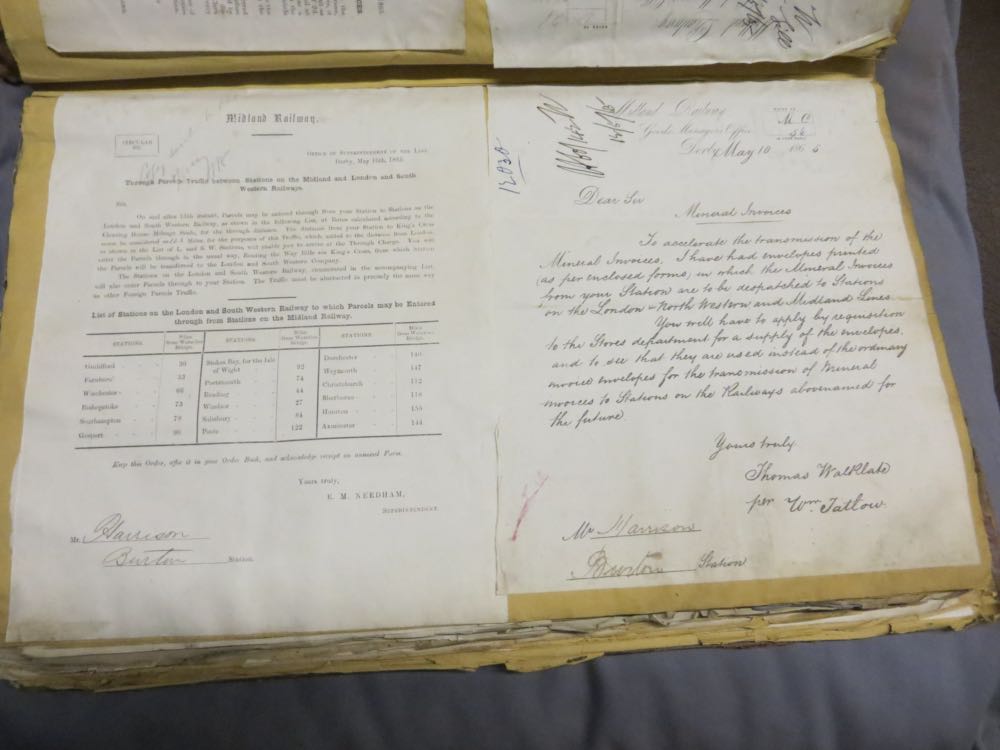 Midland Railway.
CIRCULAR
Office of Superintendent of the Line,
Derby, May 11th, 1865.
Through Parcels Traffic between Stations on the Midland and London and South
Western Railways.
Sir,
On and after 15th instant, Parcels may be entered through from your Station to Stations on the
London and South Western Railway, as shown in the following List, at Rates calculated according to the
Clearing House Mileage Scale, for the through distance. The distance from your Station to King's Cross
must be considered and Miles, for the purposes of this Traffic, which added to the distance from London,
as shown in the List of L. and S. W. Stations, will enable you to arrive at the Through Charge. You will
enter the Parcels through in the usual way, Routing the Way Bills via King's Cross, from which Station
the Parcels will be transferred to the London and South Western Company.
The Stations on the London and South Western Railway, enumerated in the accompanying List,
will also enter Parcels through to your Station. The Traffic must be abstracted in precisely the same way
as other Foreign Parcels Traffic.
List of Stations on the London and South Western Railway to which Parcels may be Entered
through from Stations on the Midland Railway.
STATIONS. Miles from Waterloo Bridge. STATIONS. Miles from Waterloo Bridge. STATIONS. Miles from Waterloo Bridge.
Guildford 30 Stokes Bay, for the Isle of Wight 92 Dorchester 140
Farnham 33 Portsmouth 74 Weymouth 147
Winchester 66 Reading 44 Christchurch 112
Bishopstoke 73 Windsor 27 Sherborne 118
Southampton 79 Salisbury 84 Honiton 155
Gosport 90 Poole 122 Axminster 144
Keep this Order, affix it in your Order Book, and acknowledge receipt on annexed Form.
Yours truly,
E. M. NEEDHAM,
Superintendent.
Mr. Harrison
Burton Station.
12030
Midland Railway
Goods Manager's Office
Derby May 10 1865
M C
56
Dear Sir
Mineral Invoices
To accelerate the transmission of the
Mineral Invoices, I have had envelopes printed
(as per enclosed forms) in which the Mineral Invoices
from your Station are to be despatched to Stations
on the London & North Western and Midland Lines.
You will have to apply by requisition
to the Stores department for a supply of the envelopes,
and to see that they are used instead of the ordinary
invoice envelopes for the transmission of Mineral
invoices to Stations on the Railways abovenamed for
the future.
Yours truly
Thomas Walklate
per Wm. Tatlow.
Mr Harrison
Burton Station